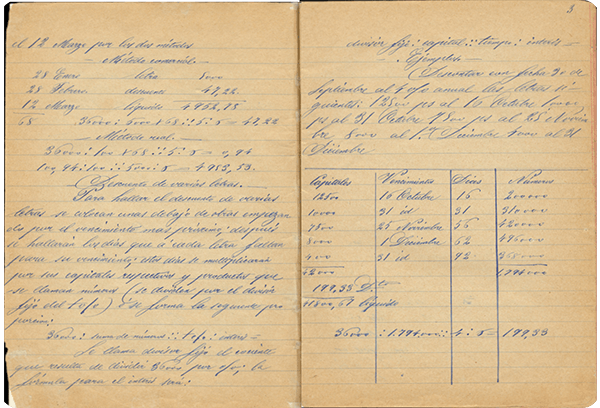 el 12 Marzo por los dos métodos
Método comercial.
28 Enero letra 5000
28 Febrero descuento 47,22
12 Marzo líquido 4952,78
68 36000 : 5000 × 68 :: 5 : x = 47,22
Método real.
36000 : 100 × 68 :: 5 : x = 0,94
100,94 : 100 :: 5000 : x = 4953,53.
Descuento de varias letras.
Para hallar el descuento de varias
letras se colocan unas debajo de otras empezan
do por el vencimiento más próximo; después
se hallarán los días que a cada letra faltan
para su vencimiento; estos días se multiplicarán
por sus capitales respectivos y productos que
se llaman números (se dividen por el divisor
fijo del %) ó se forma la siguiente pro
porción:
36000 : suma de números :: % : interés =
Se llama divisor fijo el cociente
que resulta de dividir 36000 por %; la
fórmula para el interés será:
3
divisor fijo : capital :: tiempo : interés =
Ejemplo =
Descontar con fecha 30 de
Septiembre al 4 % anual las letras si
guientes: 12500 ps al 16 Octubre 10000
ps al 31 Octubre 7500 ps al 25 Noviem
bre 8000 al 1º Diciembre 4000 al 31
Diciembre
Capitales Vencimientos Días Números
12500 16 Octubre 16 200000
10000 31 id 31 310000
7500 25 Noviembre 56 42000
8000 1 Diciembre 62 496000
4000 31 id 92 368000
42000 1794000
199,33 Dto
41800,67 líquido
36000 : 1.794,000 :: 4 : x = 199,33